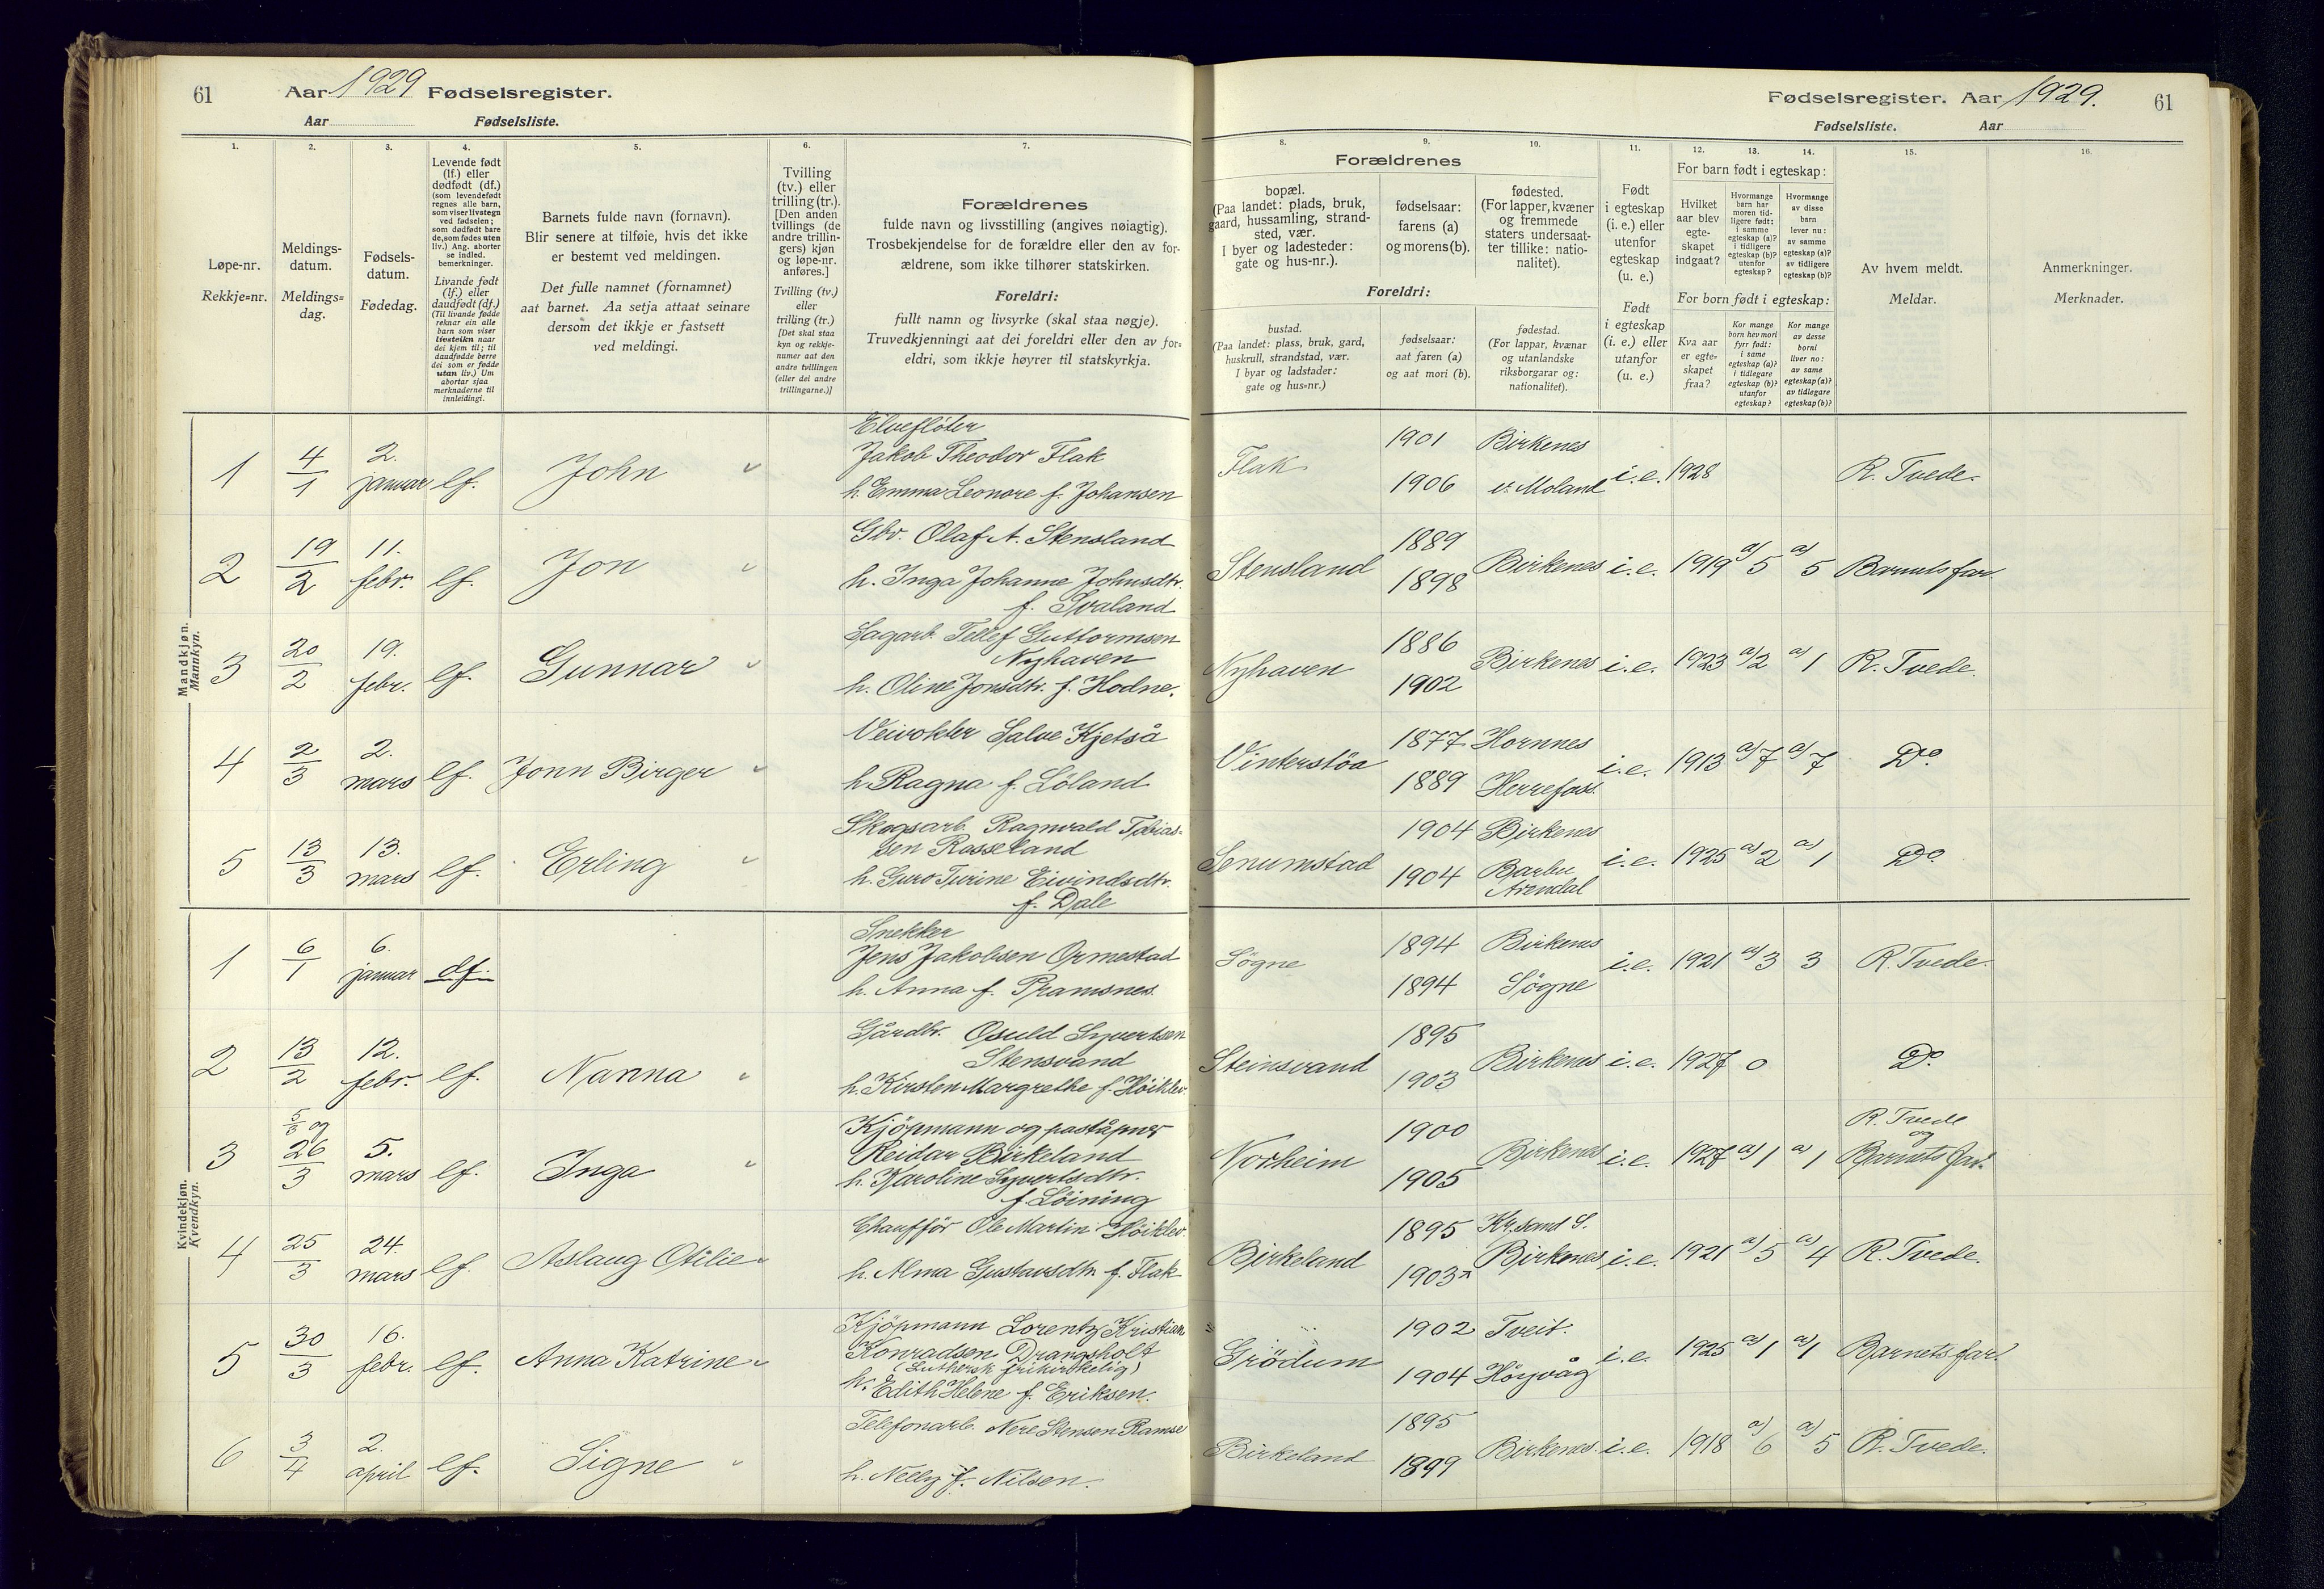 61 Aar 1929 Fødselsregister.
Aar Fødselsliste.
Fødselsregister. Aar 1929. 61
Fødselsliste. Aar
1. 2. 3. 4. 5. 6. 7. 8. 9. 10. 11. 12. 13. 14. 15. 16.
Løpe-nr.
Rekkje=nr.
Meldings-
datum.
Meldings=
dag.
Fødsels-
datum.
Fødedag.
Levende født
(lf.) eller
dødfødt (df.)
(som levendefødt
regnes alle barn,
som viser livstegn
ved fødselen;
som dødfødt bare
de, som fødes uten
liv.) Ang. aborter
se indled.
bemerkninger.
Livande født
(lf.) eller
daudfødt (df.)
(Til livande fødde
reknar ein alle
barn som viser
livsteikn naar
dei kjem til; til
daudfødde berre
dei som er fødde
utan liv.) Um
abortar sjaa
merknaderne til
innleidingi.
Barnets fulde navn (fornavn).
Blir senere at tilføie, hvis det ikke
er bestemt ved meldingen.
Det fulle namnet (fornamnet)
aat barnet. Aa setja attaat seinare
dersom det ikkje er fastsett
ved meldingi.
Tvilling
(tv.) eller
trilling (tr.).
[Den anden
tvillings (de
andre trillin-
gers) kjøn
og løpe-nr.
anføres.]
Tvilling (tv.)
eller
trilling (tr.)
[Det skal staa
kyn og rekkje-
numer aat den
andre tvillingen
(eller dei andre
trillingarne.)]
Forældrenes
fulde navn og livsstilling (angives nøiagtig).
Trosbekjendelse for de forældre eller den av for-
ældrene, som ikke tilhører statskirken.
Foreldri:
fullt namn og livsyrke (skal staa nøgje).
Truvedkjenningi aat dei foreldri eller den av for=
eldri, som ikkje høyrer til statskyrkja.
Forældrenes
bopæl.
(Paa landet: plads, bruk,
gaard, hussamling, strand-
sted, vær.
I byer og ladesteder:
gate og hus-nr.).
fødselsaar:
farens (a)
og morens (b).
fødested.
(For lapper, kvæner
og fremmede
staters undersaat-
ter tillike: natio-
nalitet).
Foreldri:
bustad.
(Paa landet: plass, bruk, gard,
huskrull, strandstad, vær.
I byar og ladstader:
gate og hus=nr.)
fødselsaar:
aat faren (a)
og aat mori (b).
fødestad.
(For lappar, kvænar
og utanlandske
riksborgarar og:
nationalitet).
Født
i egteskap
(i. e.) eller
utenfor
egteskap
(u. e.)
Født
i egteskap
(i. e.) eller
utanfor
(u. e.)
For barn født i egteskap:
Hvilket
aar blev
egte-
skapet
indgaat?
Hvormange
barn har
moren tid-
ligere født:
i samme
egteskap (a)?
i tidligere
egteskap (b)?
utenfor
egteskap?
Hvormange
av disse
barn
lever nu:
av samme
egteskap (a)?
av tidligere
egteskap (b)?
For born født i egteskap:
Kva aar
er egte=
skapet
fraa?
Kor mange
born hev mori
fyrr født:
i same
egteskap (a)?
i tidlegare
egteskap (b)?
utanfor
egteskap?
Kor mange
av desse
borni
liver no:
av same
egteskap (a)?
av tidlegare
egteskap (b)?
Av hvem meldt.
Meldar.
Anmerkninger.
Merknader.
Mandkjøn.
Mannkyn.
Elvefløter
1 4/1 2. januar lf. John Jakob Theodor Flak
h. Emma Leonore f. Johansen
Flak 1901 Birkenes
1906 ø. Moland i.e. 1928 R. Tvede.
2 19/2 11. febr. lf. Jon Gbr. Olaf A. Stensland
h. Inga Johanne Johnsdtr.
f. Svaland
Stensland 1889
1898 Birkenes i.e. 1919 a) 5 a) 5 Barnets far.
3 20/2 19. febr. lf. Gunnar Sagarb. Tellef Guttormsen
Nyhaven
h. Oline Jonsdtr. f. Hodne.
Nyhaven 1886
1902 Birkenes i.e. 1923 a) 2 a) 1 R. Tvede.
4 2/3 2. mars lf. Jonn Birger Veivokter Salve Kjetså
h. Ragna f. Löland
Vinterstöa 1877 Hornnes
1889 Herrefoss i.e. 1913 a) 7 a) 7 Do.
5 13/3 13. mars lf. Erling Skogsarb. Ragnvald Tobias-
sen Rosseland
h. Guro Turine Eivindsdtr.
f. Dale
Senumstad 1904 Birkenes
1904 Barbu
Arendal i.e. 1925 a) 2 a) 1 Do.
Kvindekjøn.
Kvendkyn.
Snekker
1 6/1 6. januar df. Jens Jakobsen Ormestad
h. Anna f. Pramsnes.
Søgne 1894 Birkenes
1894 Søgne i.e. 1921 a) 3 3 R. Tvede.
2 13/2 12. febr. lf. Nanna Gårdbr. Osuld Syvertsen
Stensvand
h. Kirsten Margrethe f. Höiklev.
Steinsvand 1895
1903 Birkenes i.e. 1927 0 Do.
3 5/3 og 26/3 5. mars lf. Inga Kjöpmann og poståpner
Reidar Birkeland
h. Karoline Syvertsdtr.
f. Löining
Norheim 1900
1905 Birkenes i.e. 1927 a) 1 a) 1 R. Tvede
og
Barnets far.
4 25/3 24. mars lf. Aslaug Otilie Chaufför Ole Martin Höiklev.
h. Alma Gustavsdtr. f. Flak
Birkeland 1895 Kr.sand S.
1903 Birkenes i.e. 1921 a) 5 a) 4 R. Tvede.
5 30/3 16. febr. lf. Anna Katrine Kjöpmann Lorentz Kristian
Konradsen Drangsholt
(Luthersk frikirkelig)
h. Edith Helene f. Eriksen.
Grödum 1902 Tveit.
1904 Höyvåg i.e. 1925 a) 1 a) 1 Barnets far.
6 3/4 2. april lf. Signe Telefonarb. Nere Stensen Ramse
h. Nelly f. Nilsen.
Birkeland 1895
1899 Birkenes i.e. 1918 a) 6 a) 5 R. Tvede.